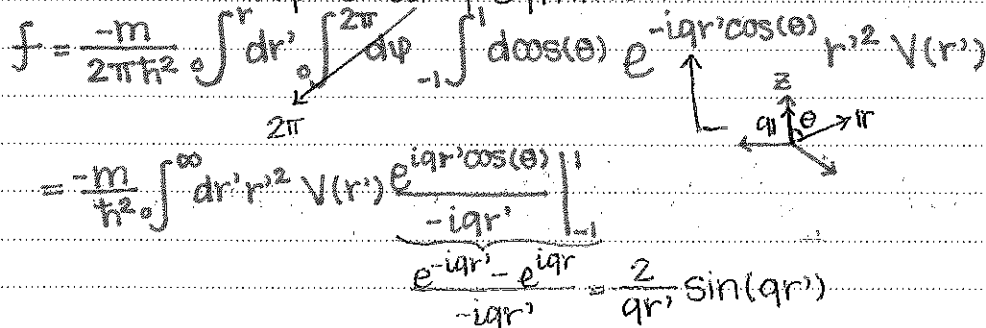 f = -m/2πħ² ₀∫^r dr' ₀∫^2π dφ ₋₁∫^1 dcos(θ) e^-iqr'cos(θ) r'² V(r')
2π
z
q θ r
= -m/ħ² ₀∫^∞ dr' r'² V(r') e^iqr'cos(θ)/-iqr' |₋₁^1
e^-iqr' - e^iqr/-iqr' = 2/qr' sin(qr')